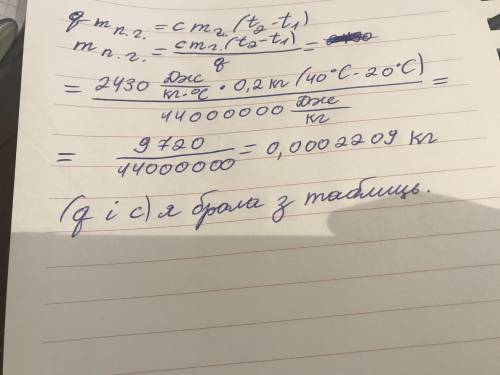 q m п.г. = c m г. (t₂-t₁)
m п.г. = c m г. (t₂-t₁) / q =
= 2430 Дж/кг·°C · 0,2 кг (40°C - 20°C) / 44000000 Дж/кг =
= 9720 / 44000000 = 0,0002209 кг
(q і c) я брала з таблиць.